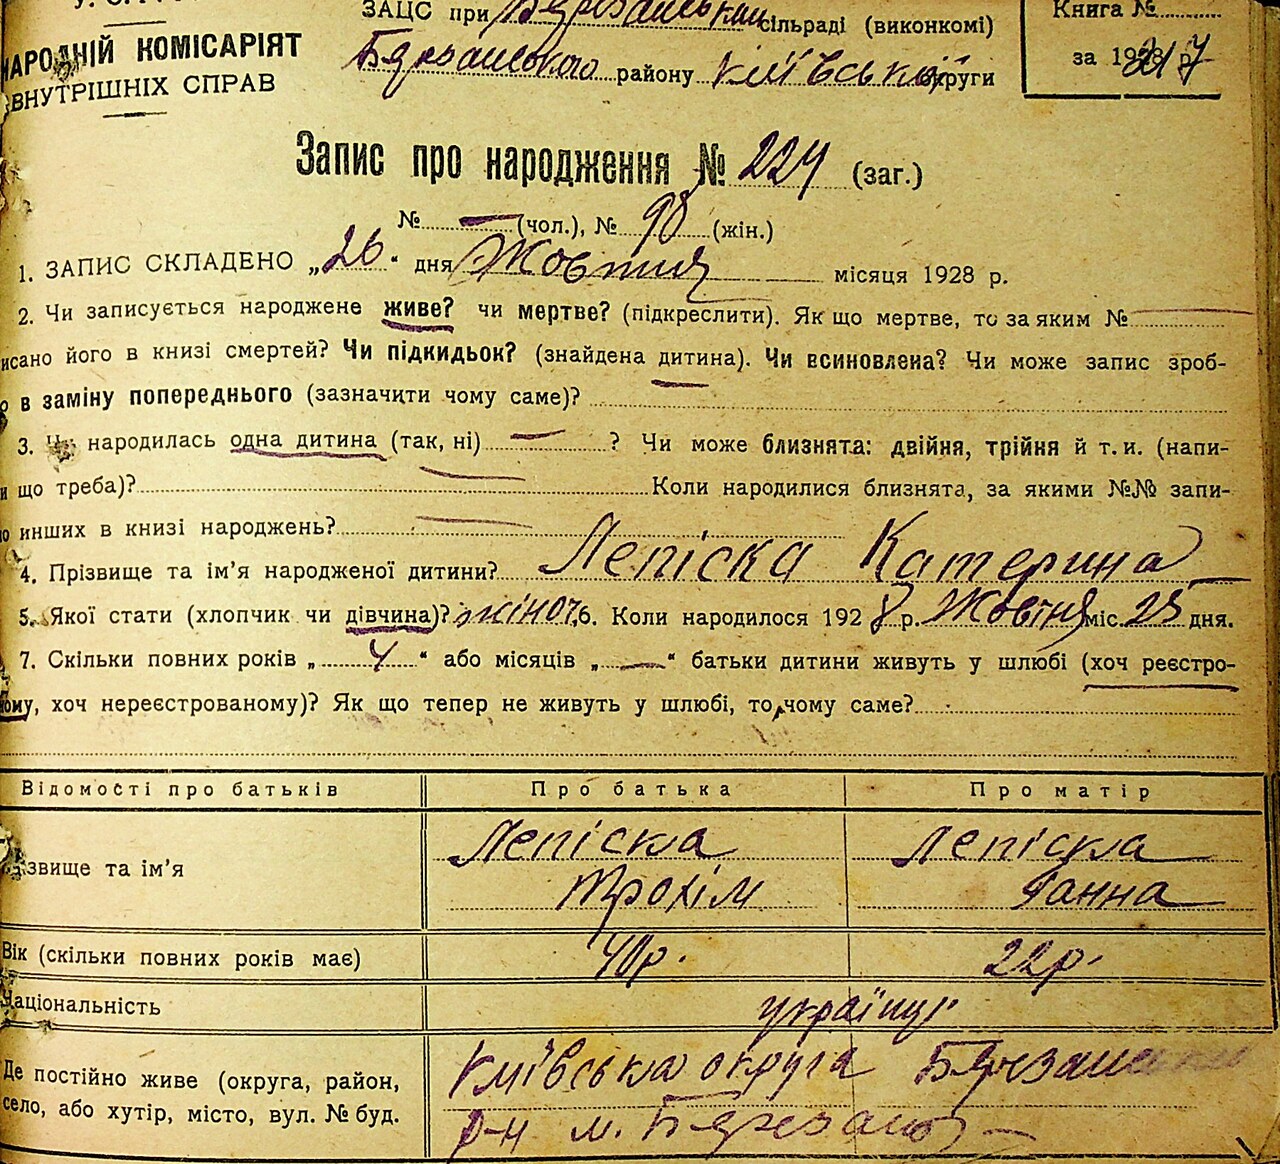 ЗАЦС при Березанському сільраді (виконкомі)
Книга №
НАРОДНІЙ КОМІСАРІЯТ
ВНУТРІШНІХ СПРАВ
Березанського району Київської округи
за 1928 р.
Запис про народження № 224 (заг.)
№ — (чол.), № 98 (жін.)
1. ЗАПИС СКЛАДЕНО „26“ дня Жовтня місяця 1928 р.
2. Чи записується народжене живе? чи мертве? (підкреслити). Як що мертве, то за яким №
исано його в книзі смертей? Чи підкидьок? (знайдена дитина). Чи всиновлена? Чи може запис зроб-
о в заміну попереднього (зазначити чому саме)?
3. Чи народилась одна дитина (так, ні) — ? Чи може близнята: двійня, трійня й т. и. (напи-
и що треба)? Коли народилися близнята, за якими №№ запи-
о инших в книзі народжень?
4. Прізвище та ім’я народженої дитини? Лепіска Катерина
5. Якої стати (хлопчик чи дівчина)? жіноч. 6. Коли народилося 1928 р. Жовтня міс. 25 дня.
7. Скільки повних років „4“ або місяців „—“ батьки дитини живуть у шлюбі (хоч реєстро-
ому, хоч нереєстрованому)? Як що тепер не живуть у шлюбі, то чому саме?
Відомості про батьків Про батька Про матір
звище та ім’я Лепіска Трохім Лепіска Ганна
Вік (скільки повних років має) 40 р. 22 р.
Національність українці
Де постійно живе (округа, район, Київська округа Березанськ
село, або хутір, місто, вул. № буд. р-н м. Березань